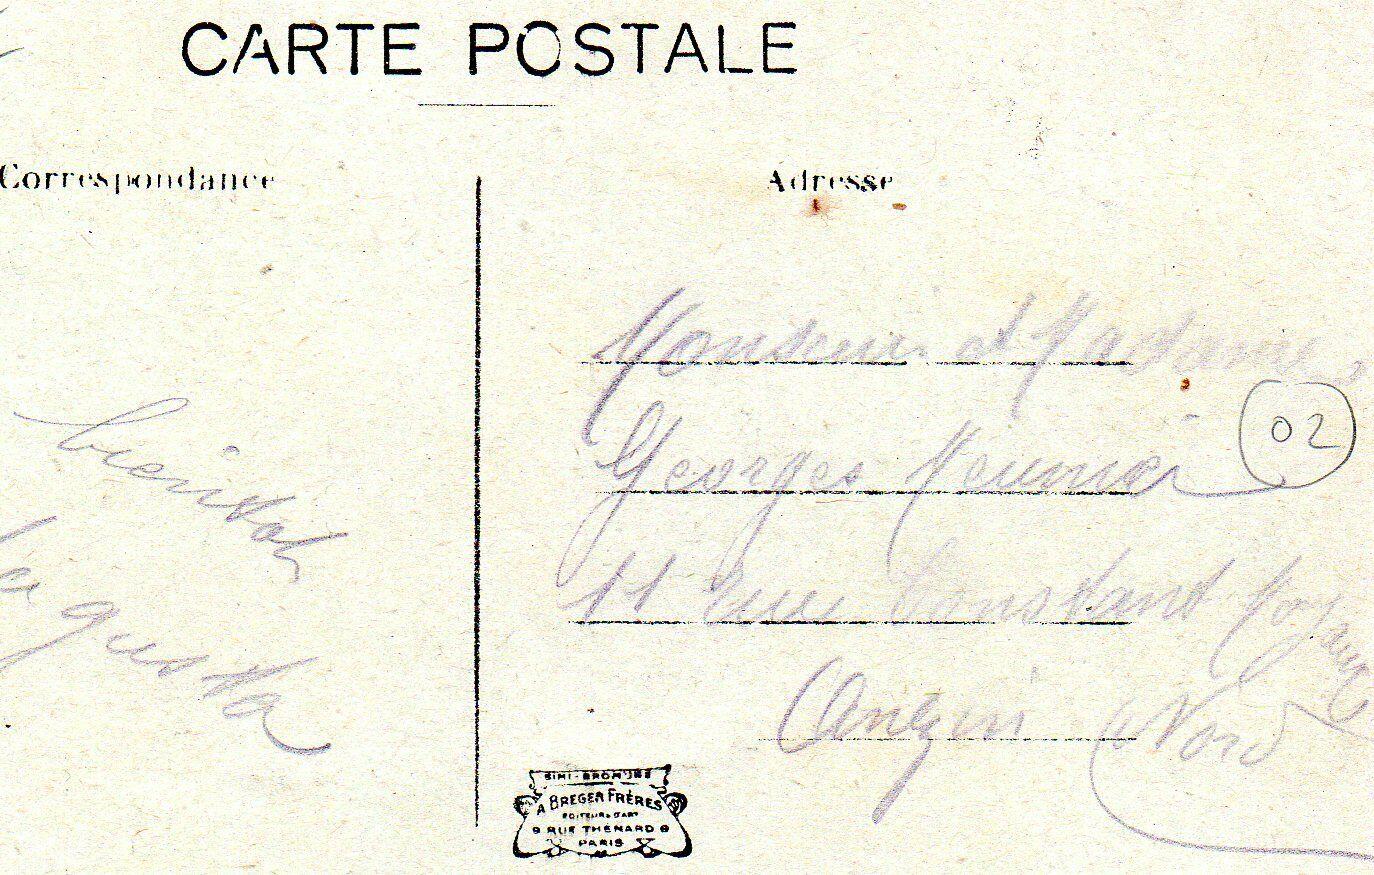 CARTE POSTALE
Correspondance
bientot
Adresse
Monsieur et Madame
Georges Meunier
02
11 rue Constant Moyaux
Anzin Nord
SIMI-BROMURE
A BREGER FRÈRES
EDITEURS D'ART
9 RUE THÉNARD 9
PARIS